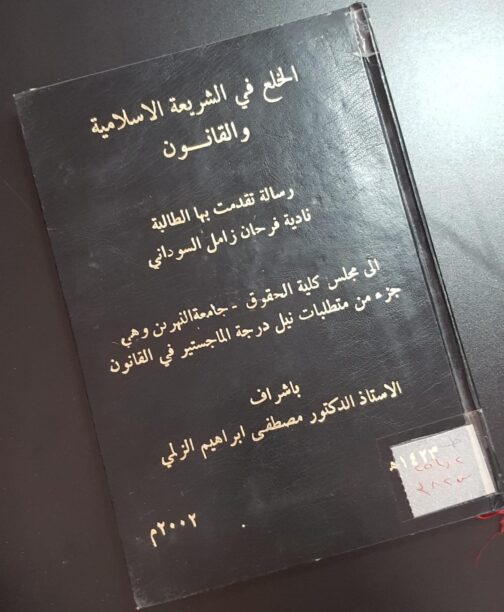 الخلع في الشريعة الاسلامية
والقانــون
رسالة تقدمت بها الطالبة
نادية فرحان زامل السوداني
الى مجلس كلية الحقوق - جامعةالنهرين وهي
جزء من متطلبات نيل درجة الماجستير في القانون
باشراف
الاستاذ الدكتور مصطفى ابراهيم الزلمي
١٤٢٣هـ
٢٠٠٢م